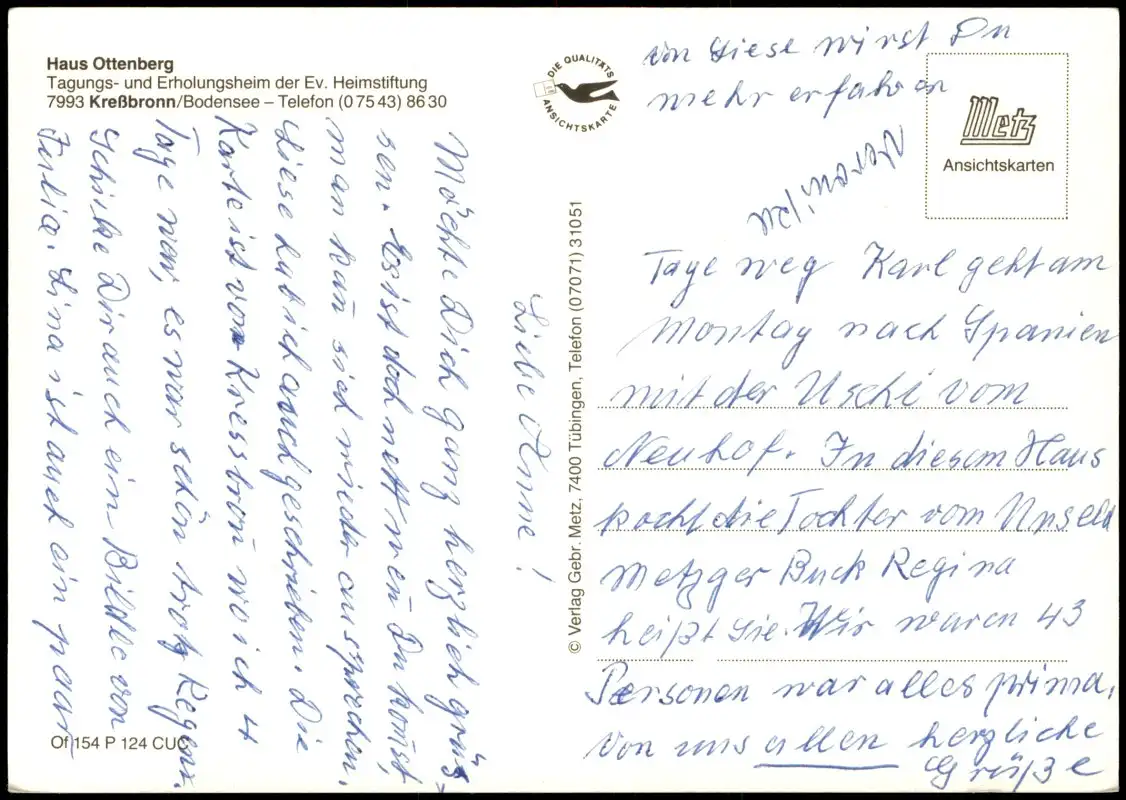 Haus Ottenberg
Tagungs- und Erholungsheim der Ev. Heimstiftung
7993 Kreßbronn/Bodensee – Telefon (0 75 43) 86 30
DIE QUALITÄTS
ANSICHTSKARTE
Metz
Ansichtskarten
© Verlag Gebr. Metz, 7400 Tübingen, Telefon (07071) 31051
Of 154 P 124 CUC
Liebe Anne!
Möchte Dich ganz herzlich grüs-
sen. Es ist doch nett wen Du komst,
man kan sich wieder aussprechen.
Liese hab ich auch geschrieben. Die
Karte ist von Kressbron wo ich 4
Tage war, es war schön trotz Regen.
Schicke Dir auch ein Bildle von
Julia. Lina ist auch ein paar
Tage weg Karl geht am
Montag nach Spanien
mit der Uschi vom
Neuhof. In diesem Haus
kocht die Tochter vom
Metzger Buck Regina
heißt Sie. Wir waren 43
Personen war alles prima.
Von uns allen herzliche
Grüße
von Liese wirst Du
mehr erfahren